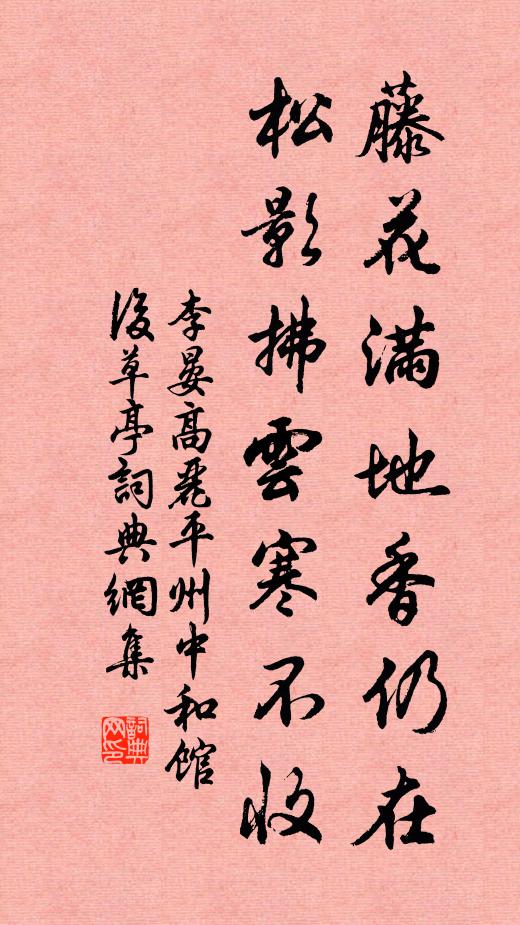 藤花滿地香仍在
松影拂雲寒不收
李晏高麗平州中和館
後草亭詞典網集
詞典網印